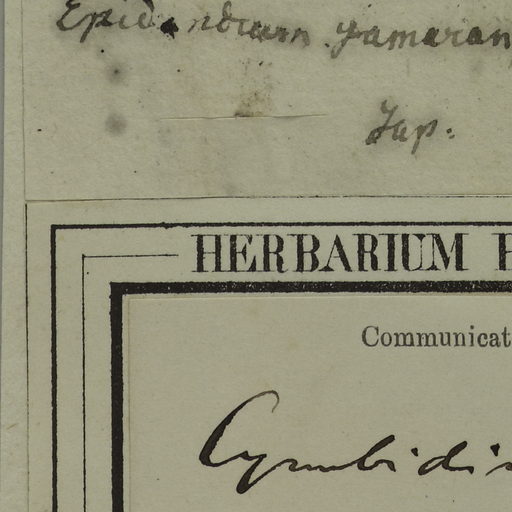 Epidendrum
Jap.
HERBARIUM
Communicat
Cymbidi